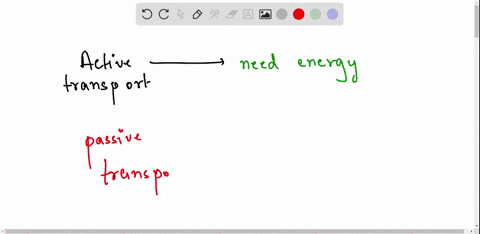 Active need energy
transport
passive
transpo